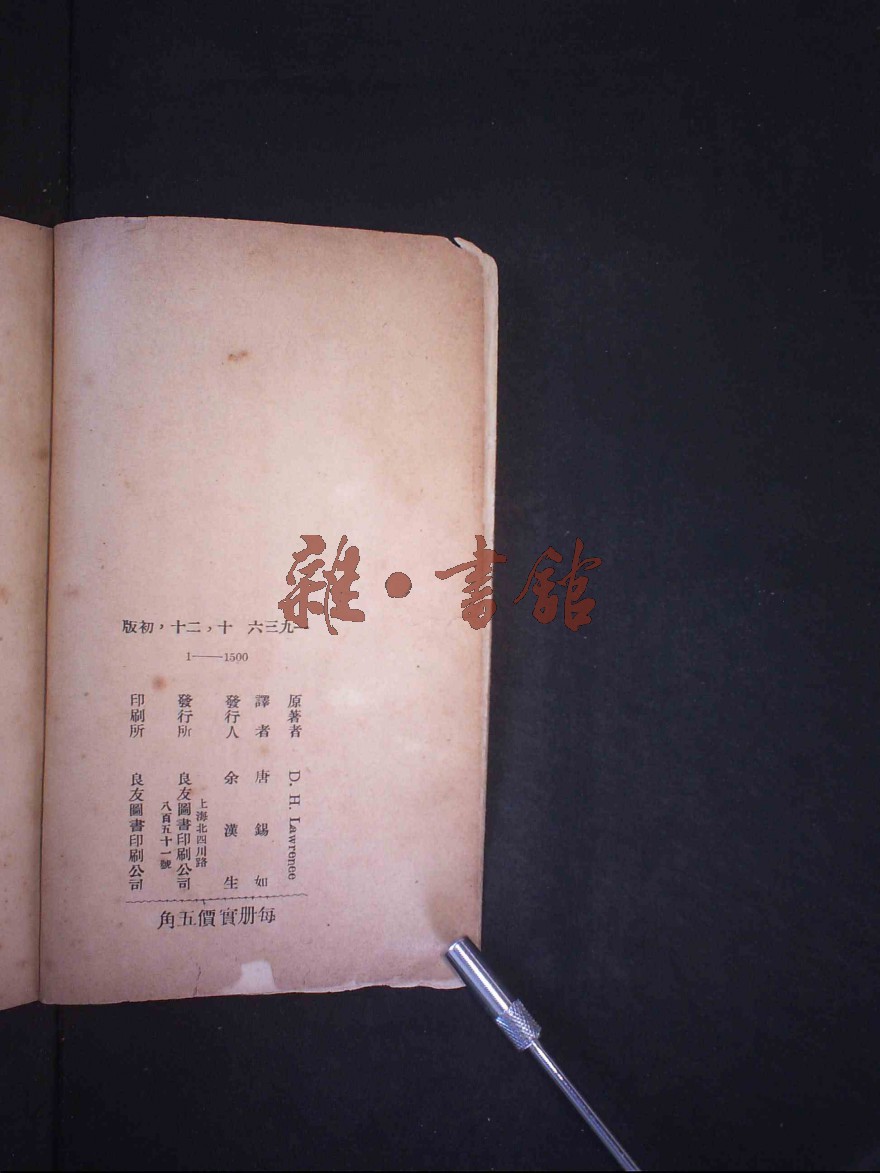 雜·書館
一九三六 十,二十,初版
1——1500
原著者 D. H. Lawrence
譯者 唐錫如
發行人 余漢生
上海北四川路
發行所 良友圖書印刷公司
八百五十一號
印刷所 良友圖書印刷公司
每册實價五角